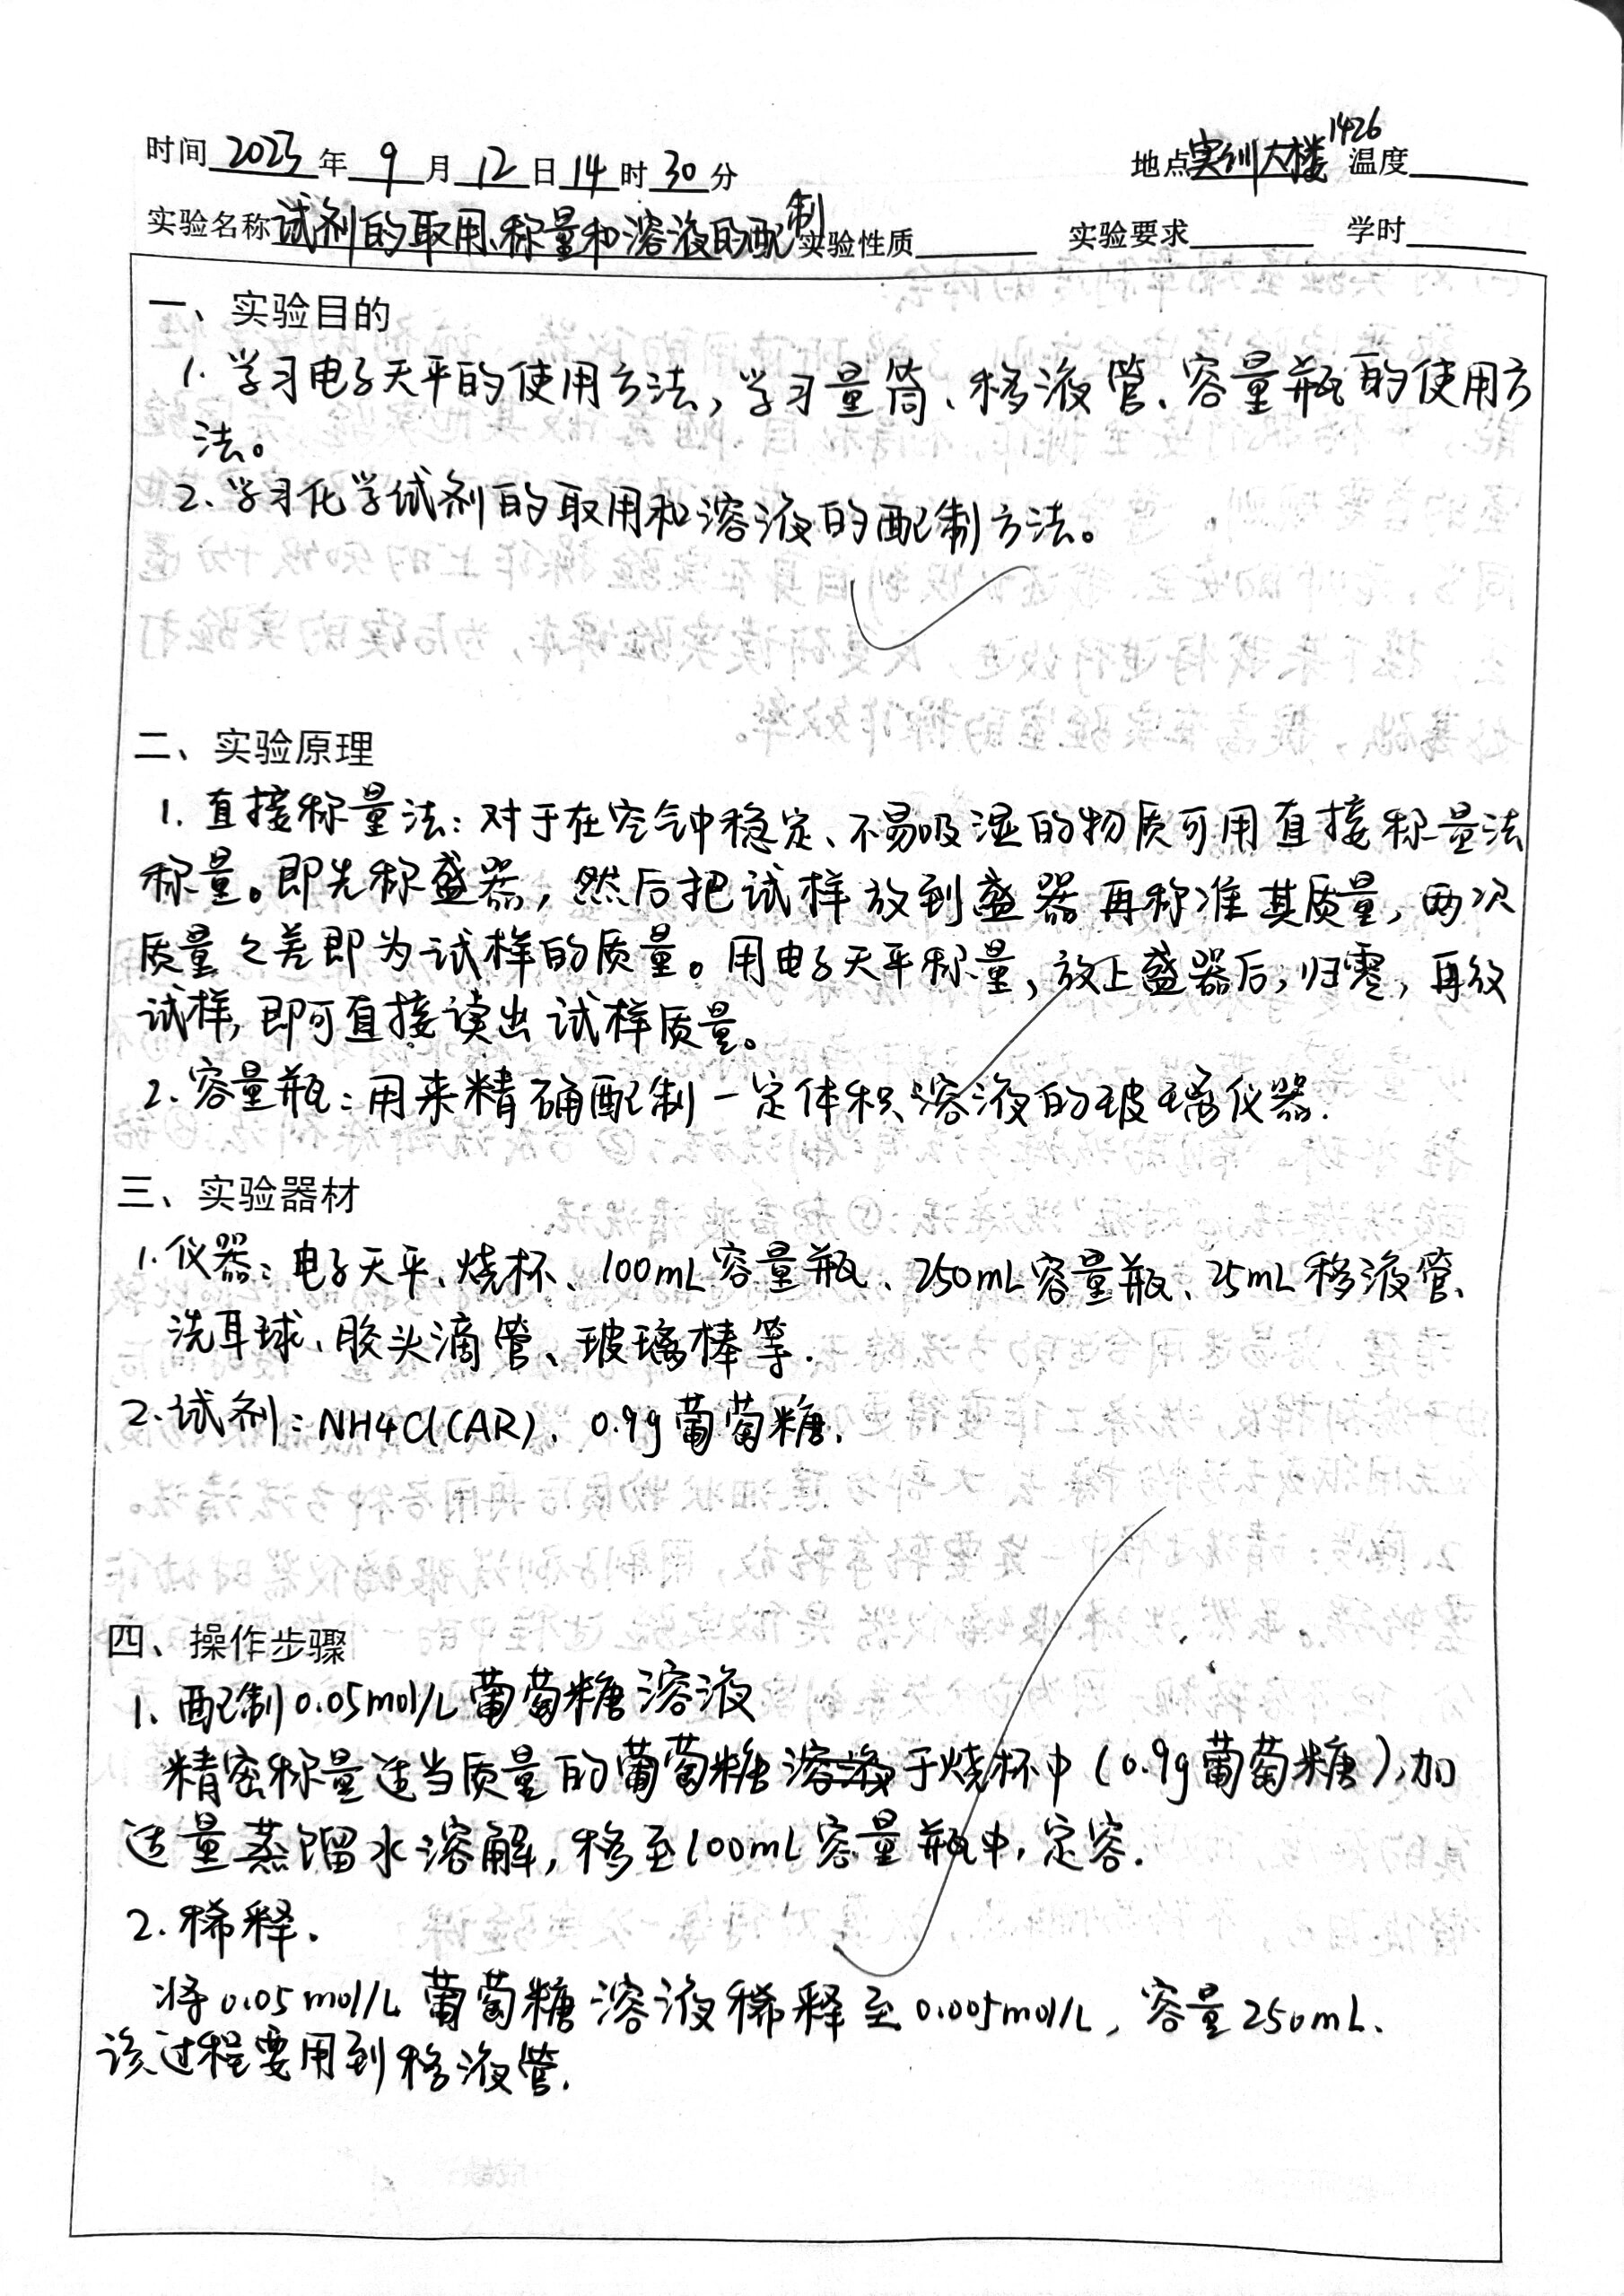 时间 2023 年 9 月 12 日 14 时 30 分 地点 实训大楼1426 温度
实验名称 试剂的取用、称量和溶液的配制 实验性质 实验要求 学时
一、实验目的
1. 学习电子天平的使用方法，学习量筒、移液管、容量瓶的使用方
法。
2. 学习化学试剂的取用和溶液的配制方法。
二、实验原理
1. 直接称量法：对于在空气中稳定、不易吸湿的物质可用直接称量法
称量。即先称盛器，然后把试样放到盛器再称准其质量，两次
质量之差即为试样的质量。用电子天平称量，放上盛器后，归零，再放
试样，即可直接读出试样质量。
2. 容量瓶：用来精确配制一定体积溶液的玻璃仪器.
三、实验器材
1. 仪器：电子天平、烧杯、100mL容量瓶、250mL容量瓶、25mL移液管、
洗耳球、胶头滴管、玻璃棒等.
2. 试剂：NH4Cl(AR)、0.9g葡萄糖.
四、操作步骤
1. 配制0.05mol/L葡萄糖溶液
精密称量适当质量的葡萄糖溶液于烧杯中(0.9g葡萄糖),加
适量蒸馏水溶解，移至100mL容量瓶中,定容.
2. 稀释.
将0.05mol/L葡萄糖溶液稀释至0.005mol/L，容量250mL.
该过程要用到移液管.